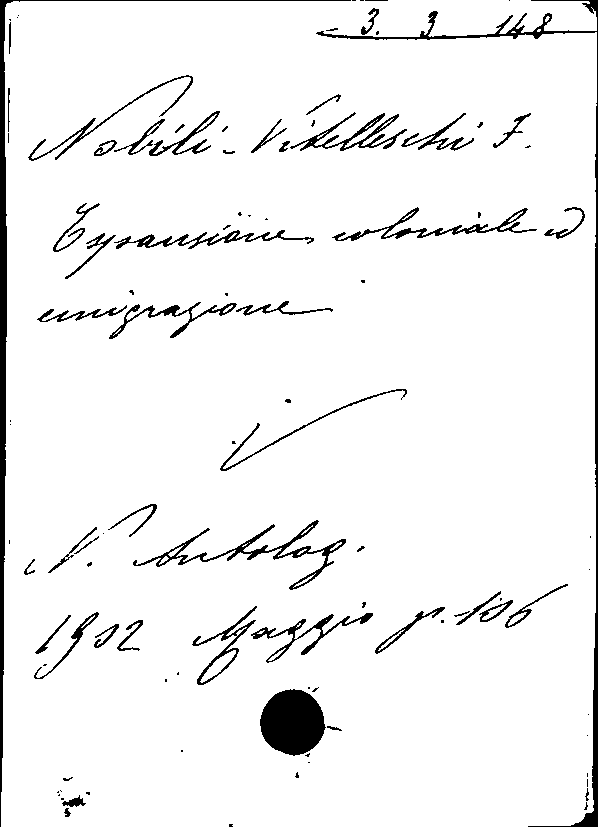 3. 3. 148
Nobili-Vitelleschi F.
Espansione coloniale ed
emigrazione
N. Antolog.
1902 Maggio p. 106